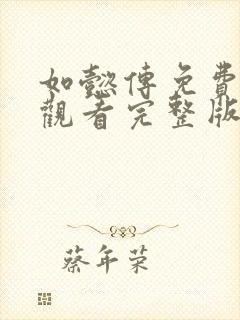 如懿傳免費
觀看完整版
蔡年荣